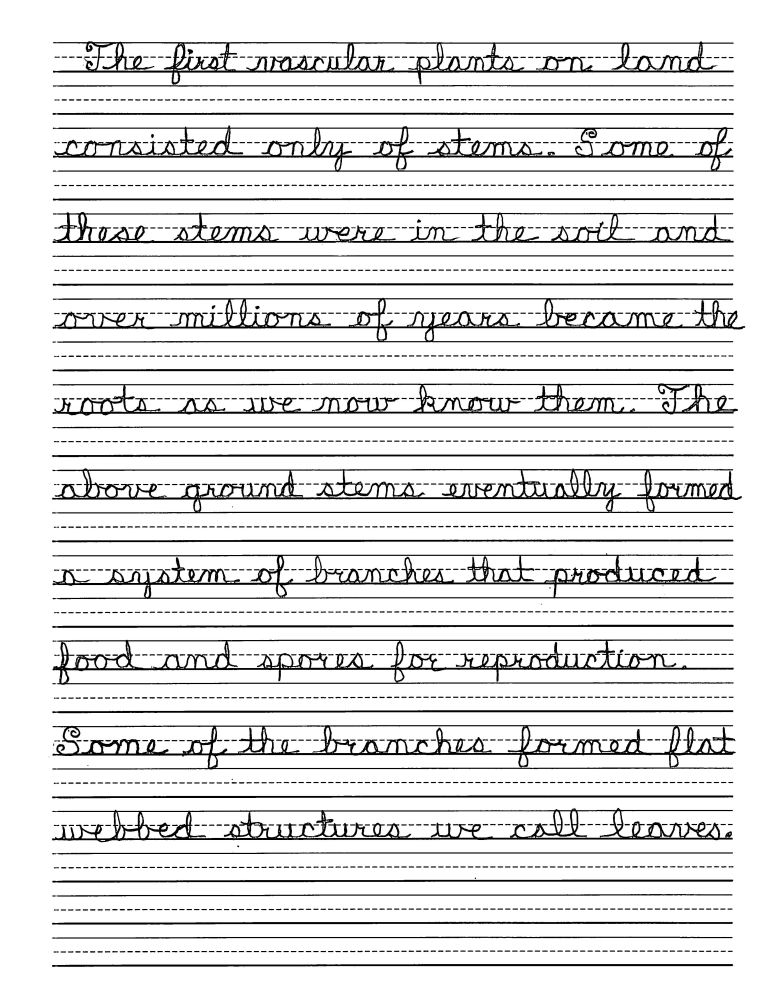 The first vascular plants on land
consisted only of stems. Some of
these stems were in the soil and
over millions of years became the
roots as we now know them. The
above ground stems eventually formed
a system of branches that produced
food and spores for reproduction.
Some of the branches formed flat
webbed structures we call leaves.